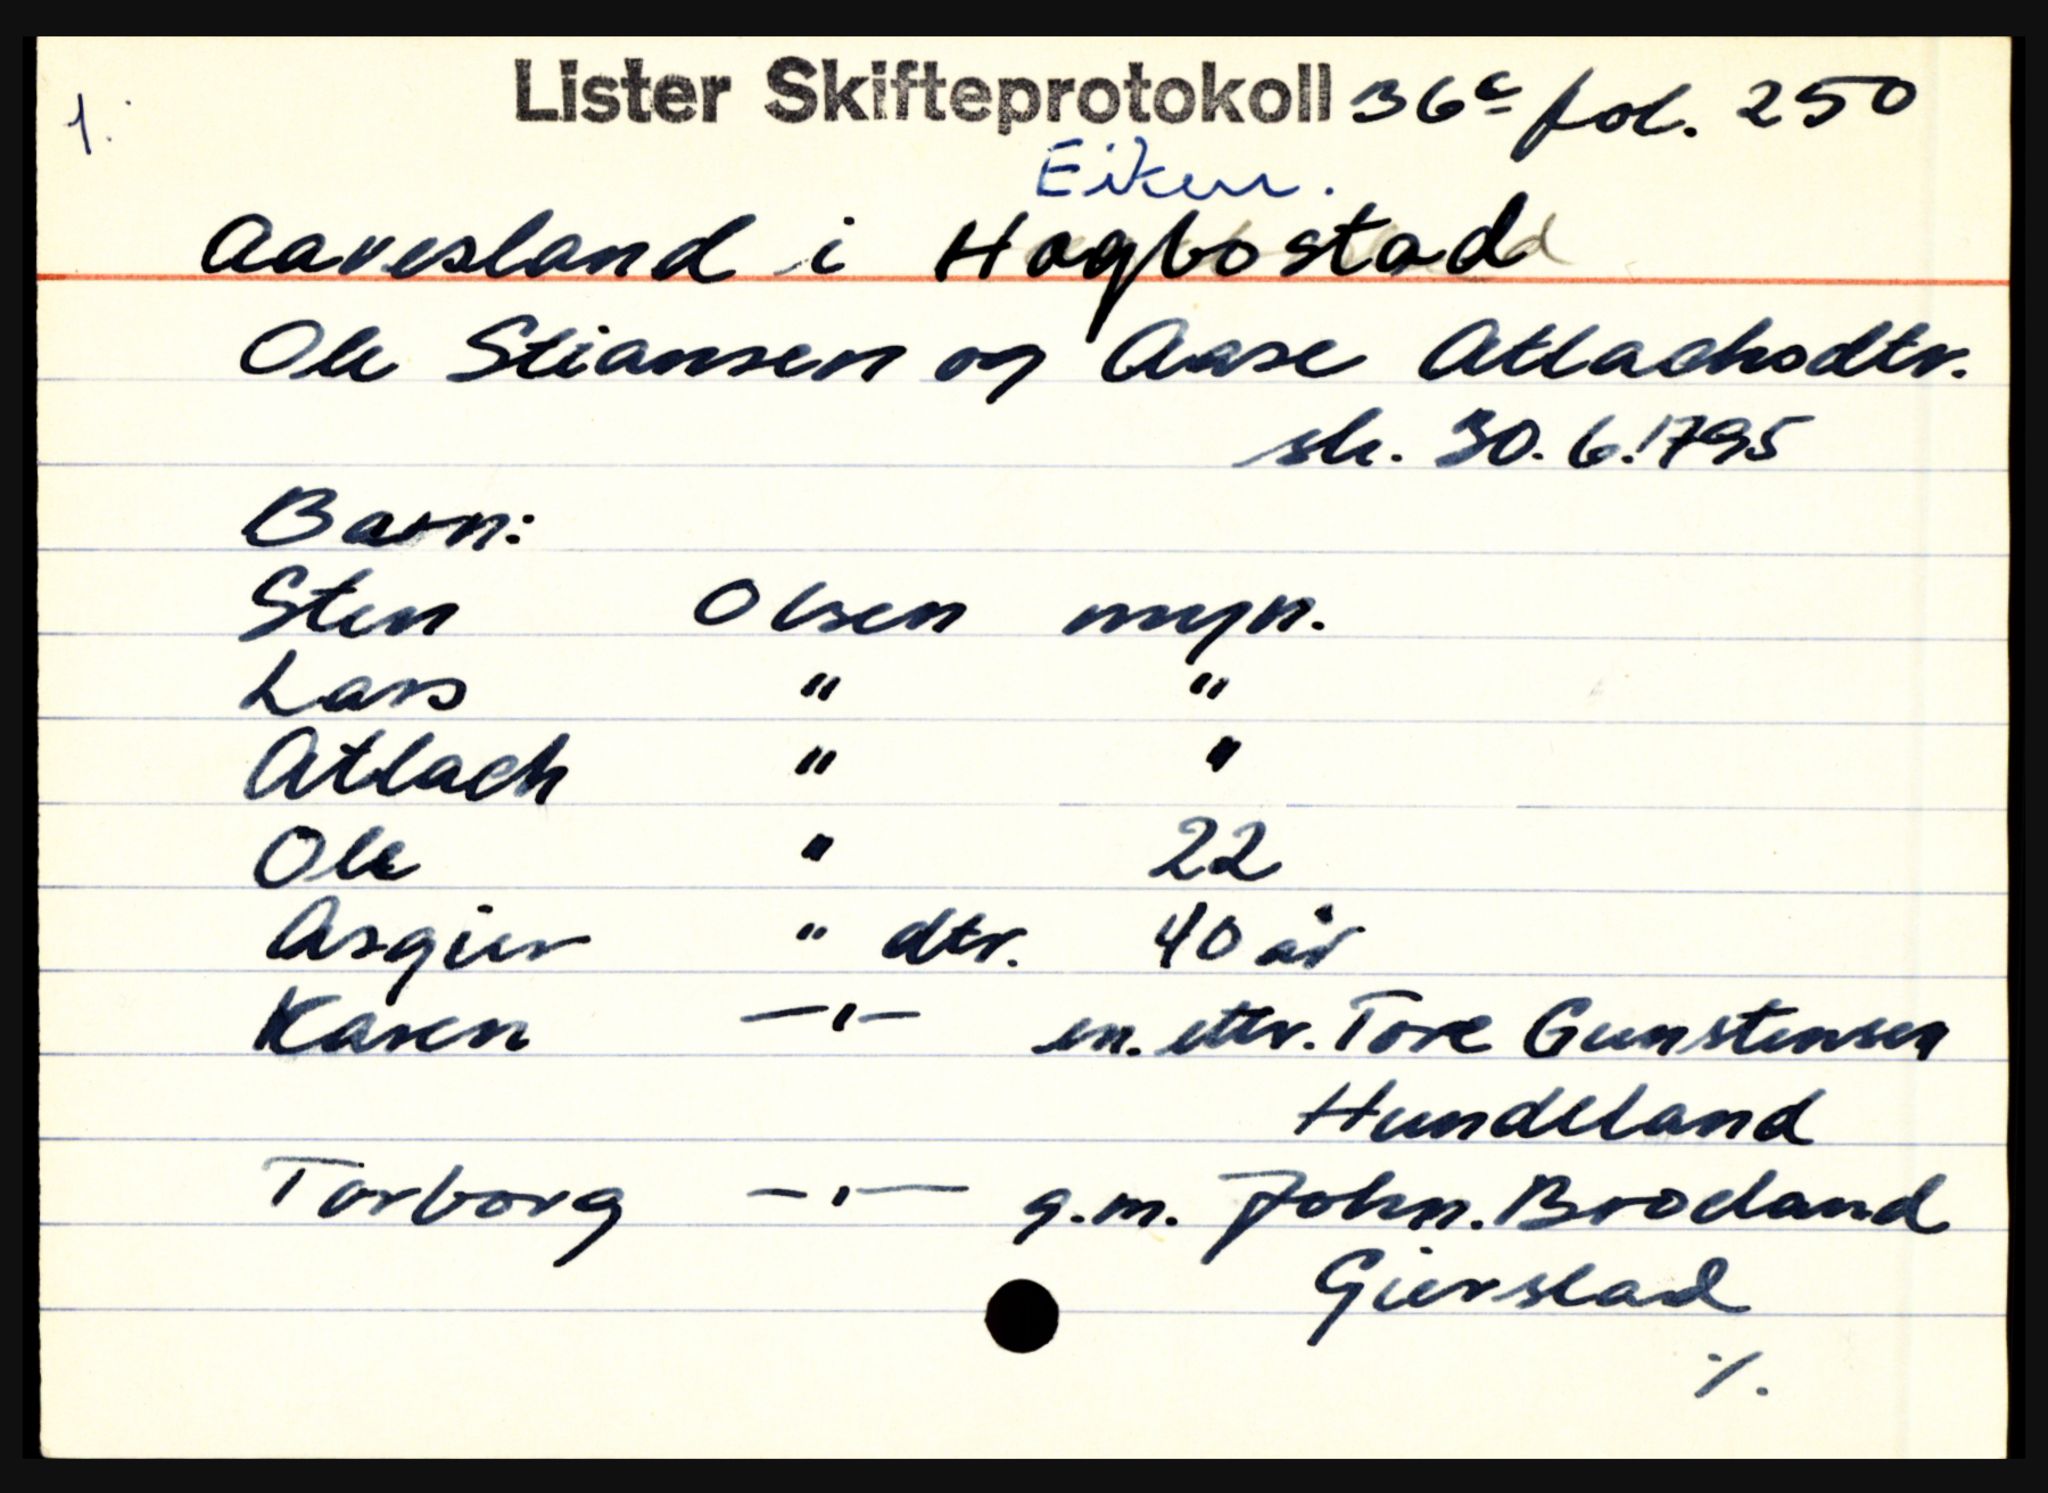 1. Lister Skifteprotokoll 36c fol. 250
Eiken.
Aavesland i Hægbostad
Ole Stiansen og Aase Atlachsdtr.
sk. 30.6.1795
Barn:
Sten Olsen myn.
Lars " "
Atlach " "
Ole " 22
Asgier " dtr. 40 år
Karen —"— en. ettr. Tore Gunstensen
Hundeland
Torborg —"— g.m. John. Broeland
Gierstad
./.